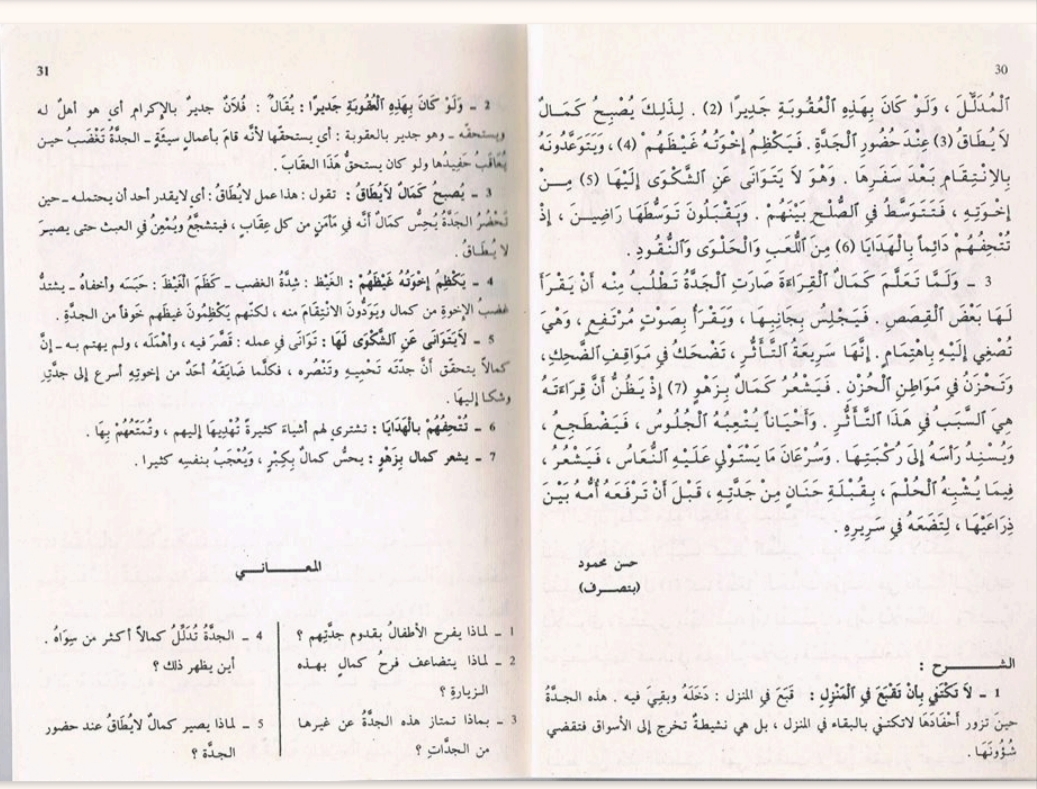 30
ٱلْمُدَلَّلَ ، وَلَوْ كَانَ بِهَذِهِ ٱلْعُقُوبَةِ جَدِيرًا (2) . لِذَلِكَ يُصْبِحُ كَمَالٌ
لاَ يُطَاقُ (3) عِنْدَ حُضُورِ ٱلْجَدَّةِ . فَيَكْظِمُ إِخْوَتُهُ غَيْظَهُمْ (4) ، وَيَتَوَعَّدُونَهُ
بِالاِنْتِقَامِ بَعْدَ سَفَرِهَا . وَهْوَ لاَ يَتَوَانَى عَنِ الشَّكْوَى إِلَيْهَا (5) مِنْ
إِخْوَتِهِ ، فَتَتَوَسَّطُ فِي الصُّلْحِ بَيْنَهُمْ . وَيَقْبَلُونَ تَوَسُّطَهَا رَاضِينَ ، إِذْ
تُتْحِفُهُمْ دَائِماً بِالْهَدَايَا (6) مِنَ اللُّعَبِ وَالْحَلْوَى وَالنُّقُودِ .
3 ـ وَلَمَّا تَعَلَّمَ كَمَالٌ ٱلْقِرَاءَةَ صَارَتِ ٱلْجَدَّةُ تَطْلُبُ مِنْه أَنْ يَقْرَأَ
لَهَا بَعْضَ ٱلْقِصَصِ . فَيَجْلِسُ بِجَانِبِهَا ، وَيَقْرَأُ بِصَوْتٍ مُرْتَفِعٍ ، وَهْيَ
تُصْغِي إِلَيْهِ بِاهْتِمَامٍ . إِنَّهَا سَرِيعَةُ التَّأَثُّرِ ، تَضْحَكُ فِي مَوَاقِفِ الضَّحِكِ،
وَتَحْزَنُ فِي مَوَاطِنِ ٱلْحُزْنِ . فَيَشْعُرُ كَمَالٌ بِزَهْوٍ (7) إِذْ يَظُنُّ أَنَّ قِرَاءَتَهُ
هِيَ السَّبَبُ فِي هَذَا التَّأَثُّرِ . وَأَحْيَاناً يُتْعِبُهُ ٱلْجُلُوسُ ، فَيَضْطَجِعُ ،
وَيُسْنِدُ رَأْسَهُ إِلَى رَكْبَتِهَا . وَسُرْعَانَ مَا يَسْتَوْلِي عَلَيْهِ النُّعَاسُ ، فَيَشْعُرُ ،
فِيمَا يُشْبِهُ ٱلْحُلْمَ ، بِقُبْلَةِ حَنَانٍ مِنْ جَدَّتِهِ ، قَبْلَ أَنْ تَرْفَعَهُ أُمُّهُ بَيْنَ
ذِرَاعَيْهَا ، لِتَضَعَهُ فِي سَرِيرِهِ .
حسن محمود
(بتصرف)
الشرح :
1 ـ لاَ تَكْتَفِي بِأَنْ تَقْبَعَ فِي الْمَنْزِلِ : قَبَعَ فِي المنزل : دَخَلَهُ وبقيَ فيه . هذه الجدةُ
حينَ تزور أَحْفَادَهَا لاتكتفي بالبقاء في المنزل ، بل هي نشيطةٌ تخرج إلى الأسواق فتقضي
شُؤُونَهَا .
31
2 ـ وَلَوْ كَانَ بِهَذِهِ الْعُقُوبَةِ جَدِيرًا : يُقَالُ : فُلاَنٌ جديرٌ بالإكرام أي هو أهلٌ له
ويستحقّه ـ وهو جدير بالعقوبة : أي يستحقّها لأنّه قامَ بأعمالٍ سيّئةٍ ـ الجدّةُ تَغْضَبُ حين
يُعَاقَبُ حَفِيدُها ولو كان يستحقُّ هَذَا العقابَ .
3 ـ يُصبح كَمَالٌ لاَيُطَاقُ : تقول : هذا عمل لايُطَاقُ : أي لايقدر أحد أن يحتمله ـ حين
تَحْضُر الجدَّةُ يُحِسُّ كمال أنَّه في مَأْمَنٍ من كل عِقَابٍ ، فيتشجَّعُ ويُمْعِن في العبث حتى يصيرَ
لا يُطَاقُ .
4 ـ يَكْظِمُ إخْوَتُهُ غَيْظَهُمْ : الغَيْظ : شِدَّةُ الغضب ـ كَظَمَ الْغَيْظَ : حَبَسَه وأخفاهُ ـ يشتدُّ
غضبُ الإخوةِ من كمال ويَوَدُّونَ الانْتِقامَ منه ، لكنّهم يَكْظِمُونَ غيظَهم خوفاً من الجدَّةِ .
5 ـ لاَيَتَوَانَى عَنِ الشَّكْوَى لَهَا : تَوَانَى في عمله : قَصَّرَ فيه ، وأهْمَلَه ، ولم يهتم به ـ إنَّ
كمالاً يتحقّق أنَّ جدّته تَحْمِيهِ وتَنْصُره ، فكلَّما ضَايَقَهُ أحَدٌ من إخوتِهِ أسرع إلى جدَّتِهِ
وشكا إليهَا .
6 ـ تُتْحِفُهُمْ بالْهَدَايَا : تشتري لهم أشياءَ كثيرةً تُهْدِيهَا إليهم ، وتُمَتِّعُهُمْ بِهَا .
7 ـ يشعر كمال بِزَهْوٍ : يحسُّ كمالٌ بِكِبْرٍ ، وَيُعْجَبُ بنفسِهِ كثيرا .
المعاني
1 ـ لماذا يفرح الأطفالُ بقدوم جدَّتِهم ؟
2 ـ لماذا يتضاعف فرحُ كمالٍ بهذه
الزيارةِ ؟
3 ـ بماذا تمتاز هذه الجدَّةُ عن غيرها
من الجدَّاتِ ؟
4 ـ الجدَّةُ تُدَلِّلُ كمالاً أكثر من سِوَاهُ .
أين يظهر ذلك ؟
5 ـ لماذا يصير كمالٌ لايُطَاقُ عند حضور
الجدَّة ؟